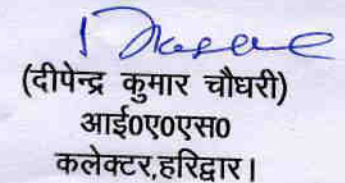 (दीपेन्द्र कुमार चौधरी)
आई0ए0एस0
कलेक्टर,हरिद्वार।